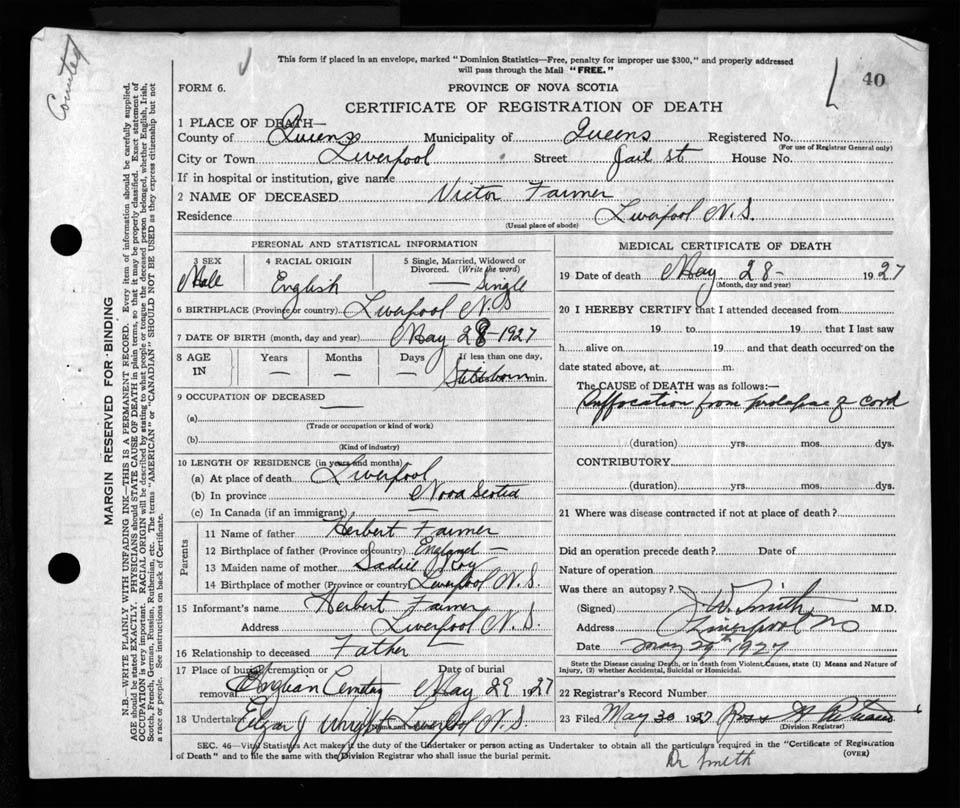 This form if placed in an envelope, marked "Dominion Statistics—Free, penalty for improper use $300," and properly addressed
will pass through the Mail "FREE."
FORM 6.
PROVINCE OF NOVA SCOTIA
40
County
CERTIFICATE OF REGISTRATION OF DEATH
1 PLACE OF DEATH—
County of Queens Municipality of Queens Registered No.
(For use of Registrar General only)
City or Town Liverpool Street Jail St House No.
If in hospital or institution, give name
2 NAME OF DECEASED Victor Farmer
Residence Liverpool N.S.
(Usual place of abode)
PERSONAL AND STATISTICAL INFORMATION
3 SEX 4 RACIAL ORIGIN 5 Single, Married, Widowed or Divorced. (Write the word)
Male English — Single
6 BIRTHPLACE (Province or country) Liverpool N.S
7 DATE OF BIRTH (month, day and year) May 28-1927
8 AGE IN Years Months Days If less than one day,
— — — Stillborn min.
9 OCCUPATION OF DECEASED
—
(a)
(Trade or occupation or kind of work)
(b)
(Kind of industry)
10 LENGTH OF RESIDENCE (in years and months)
(a) At place of death Liverpool
(b) In province Nova Scotia
(c) In Canada (if an immigrant) —
Parents
11 Name of father Herbert Farmer
12 Birthplace of father (Province or country) England —
13 Maiden name of mother Sadie
14 Birthplace of mother (Province or country) Liverpool N.S.
15 Informant's name Herbert Farmer
Address Liverpool N.S.
16 Relationship to deceased Father
17 Place of burial, cremation or removal Date of burial
Cemetry May 29 1927
18 Undertaker Edgar J Wright Liverpool N.S.
MEDICAL CERTIFICATE OF DEATH
19 Date of death May 28- 1927
(Month, day and year)
20 I HEREBY CERTIFY that I attended deceased from
19 to 19 that I last saw
h alive on 19 and that death occurred on the
date stated above, at m.
The CAUSE of DEATH was as follows:—
Suffocation from prolapse of cord
(duration) yrs. mos. dys.
CONTRIBUTORY
(duration) yrs. mos. dys.
21 Where was disease contracted if not at place of death?
Did an operation precede death? Date of
Nature of operation
Was there an autopsy?
(Signed) J W Smith M.D.
Address Liverpool NS
Date May 29th 1927
State the Disease causing Death, or in death from Violent Causes, state (1) Means and Nature of
Injury, (2) whether Accidental, Suicidal or Homicidal.
22 Registrar's Record Number
23 Filed May 30 1927 Ross
(Division Registrar)
SEC. 46—Vital Statistics Act makes it the duty of the Undertaker or person acting as Undertaker to obtain all the particulars required in the "Certificate of Registration
of Death" and to file the same with the Division Registrar who shall issue the burial permit.
(OVER)
Dr Smith
MARGIN RESERVED FOR BINDING
N.B.—WRITE PLAINLY WITH UNFADING INK—THIS IS A PERMANENT RECORD. Every item of information should be carefully supplied.
AGE should be stated EXACTLY. PHYSICIANS should STATE CAUSE OF DEATH in plain terms, so that it may be properly classified. Exact statement of
OCCUPATION is very important. RACIAL ORIGIN will be described by stating to what people or tongue the deceased person belonged, whether English, Irish,
Scotch, French, German, Russian, Ruthenian, etc. The terms "AMERICAN" or "CANADIAN" SHOULD NOT BE USED as they express citizenship but not
a race or people. See instructions on back of Certificate.